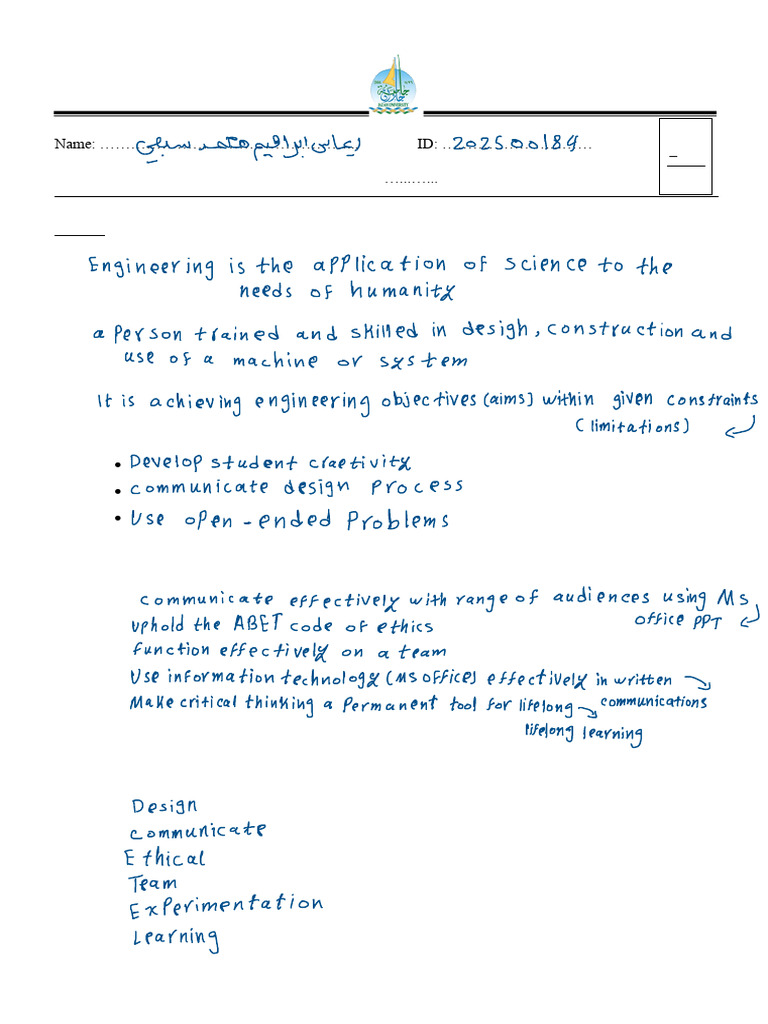 جامعة جازان
JAZAN UNIVERSITY
Name: ....... ابراهيم محمد سبعي
ID: .. 202500184...
.........
Engineering is the application of science to the
needs of humanity
a person trained and skilled in design, construction and
use of a machine or system
It is achieving engineering objectives (aims) within given constraints
(limitations)
• Develop student craetivity
• communicate design process
• Use open-ended problems
communicate effectively with range of audiences using Ms
office PPT
Uphold the ABET code of ethics
function effectively on a team
Use information technology (MS OFFICE) effectively in written
communications
Make critical thinking a permanent tool for lifelong
lifelong learning
Design
communicate
Ethical
Team
Experimentation
Learning